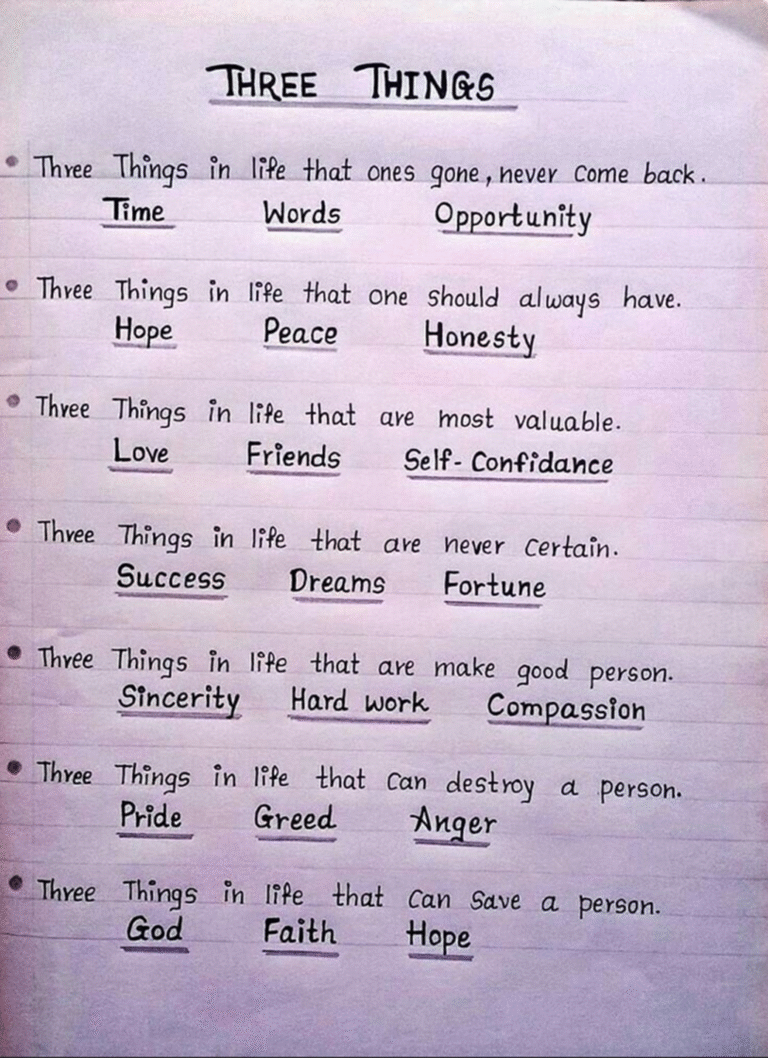 THREE THINGS
• Three Things in life that ones gone, never come back.
Time Words Opportunity
• Three Things in life that one should always have.
Hope Peace Honesty
• Three Things in life that are most valuable.
Love Friends Self-Confidance
• Three Things in life that are never certain.
Success Dreams Fortune
• Three Things in life that are make good person.
Sincerity Hard work Compassion
• Three Things in life that can destroy a person.
Pride Greed Anger
• Three Things in life that can save a person.
God Faith Hope